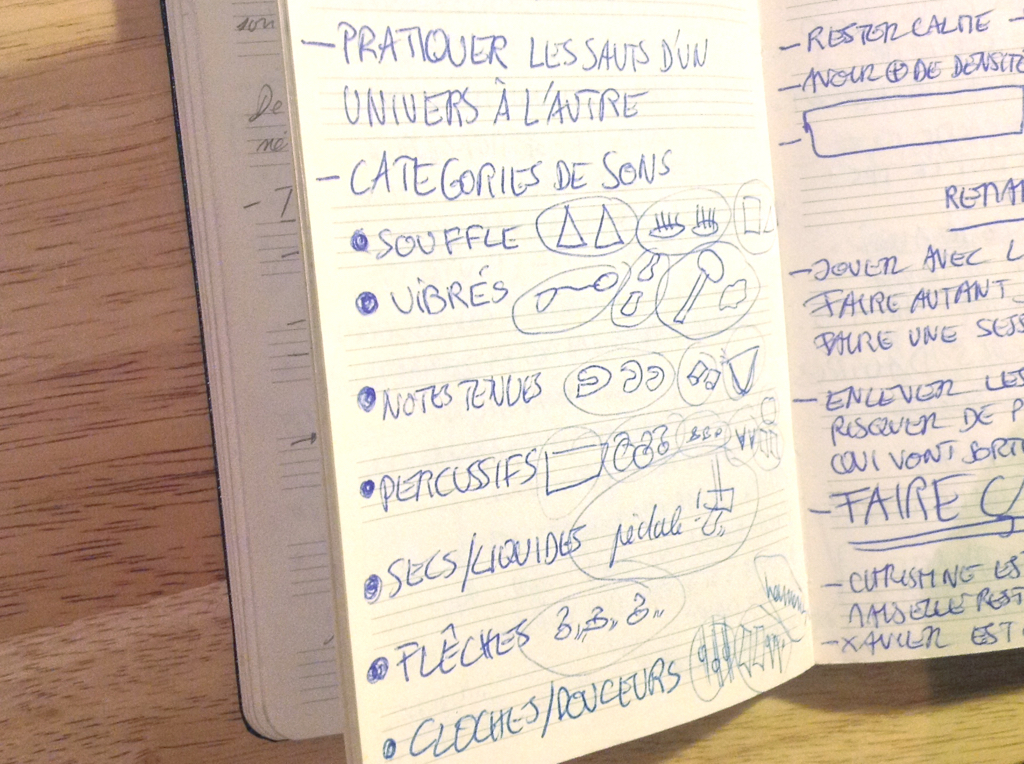 son
De
né
— PRATIQUER LES SAUTS D'UN
UNIVERS À L'AUTRE
— CATEGORIES DE SONS
• SOUFFLE
• VIBRÉS
• NOTES TENUES
• PERCUSSIFS
• SECS/LIQUIDES pédale
• FLÊCHES
• CLOCHES/DOUCEURS
— RESTER CALME
— AVOIR ⊕ DE DENSITÉ
— JOUER AVEC L
FAIRE AUTANT
FAIRE UNE SESS
— ENLEVER LES
RISQUER DE P
QUI VONT SORTI
— FAIRE
— CHRISTINE ES
MAIS ELLE REST
— XAVIER EST